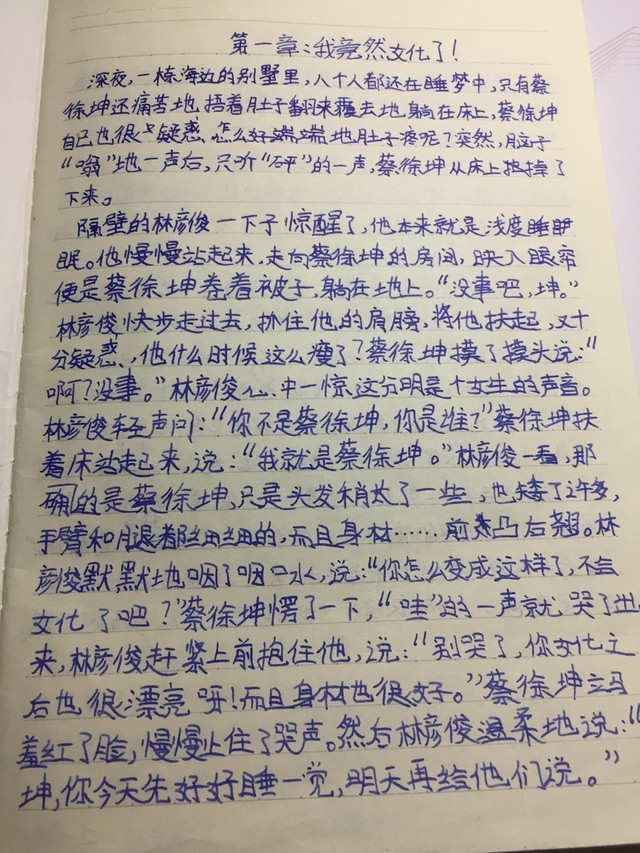 第一章:我竟然文化了!
深夜,一栋海边的别墅里,八个人都还在睡梦中,只有蔡
徐坤还痛苦地捂着肚子翻来覆去地躺在床上,蔡徐坤
自己也很是疑惑,怎么好端端地肚子疼呢?突然,脑子
“嗡”地一声后,只听“砰”的一声,蔡徐坤从床上掉
下来。
隔壁的林彦俊一下子惊醒了,他本来就是浅度睡
眠。他慢慢站起来,走向蔡徐坤的房间,映入眼帘
便是蔡徐坤卷着被子,躺在地上。“没事吧,坤。”
林彦俊快步走过去,抓住他的肩膀,将他扶起,又十
分疑惑,他什么时候这么瘦了?蔡徐坤摸了摸头说:“
啊?没事。”林彦俊心中一惊,这分明是个女生的声音。
林彦俊轻声问:“你不是蔡徐坤,你是谁?”蔡徐坤扶
着床站起来,说:“我就是蔡徐坤。”林彦俊一看,那
确的是蔡徐坤,只是头发稍长了一些,也矮了许多,
手臂和腿都细细的,而且身材……前凸后翘。林
彦俊默默地咽了咽口水,说:“你怎么变成这样了,不会
文化了吧?”蔡徐坤愣了一下,“哇”的一声就哭了出
来,林彦俊赶紧上前抱住他,说:“别哭了,你文化之
后也很漂亮呀!而且身材也很好。”蔡徐坤立马
羞红了脸,慢慢止住了哭声。然后林彦俊温柔地说:“
坤,你今天先好好睡一觉,明天再给他们说。”